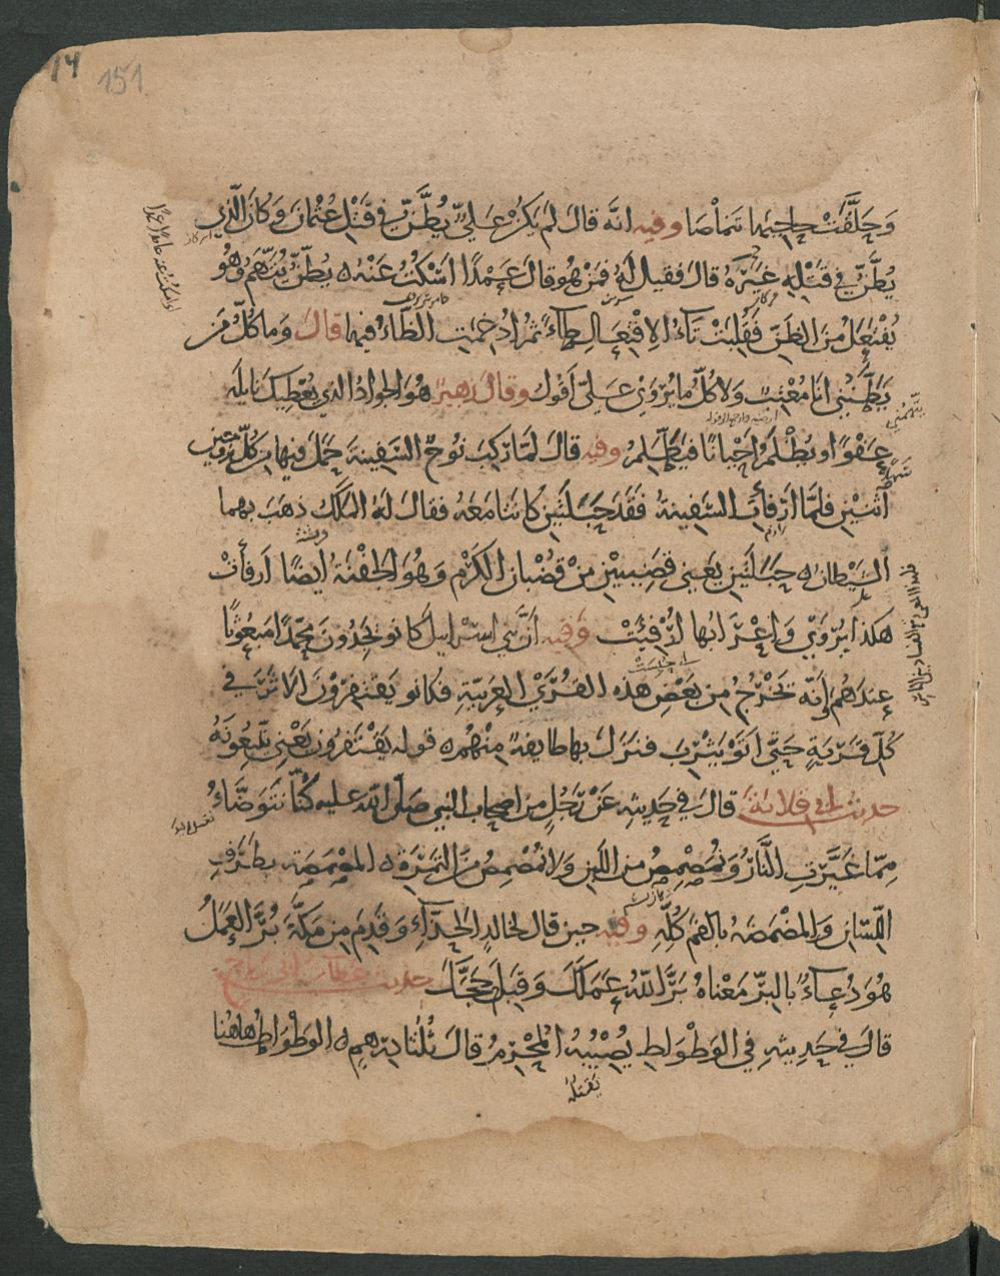 14
151
وَحَلَّقَتْ حاجِبَيها تَماْصَا وفيه انّه قالَ لمْ يَكُنْ عَلِيٌّ يُظَّنُّ في قَتْلِ عُثْمانَ وَكانَ الّذي
يُظَّنُّ في قَتْلِهِ غَيْرُهُ قالَ فقيل لَهُ فمَنْ هُو قالَ عَمْدًا اَسْكُتُ عَنْهُ يُظّنُّ يُتّهَمُ وَهُو
يُفْتَعَلُ منَ الظَنّ فَقُلِبَتْ تَاءُ الافْتِعالِ طاءً ثمّ اُدْغِمَتِ الظّاءُ فيها قالَ وَما كلُّ مَن
يَظَّنُّني انَا مُعْتِبٌ وَلا كلُّ ما يُرْوَى عَلىّ اَقولُ وقالَ زهير هُوَ الجوادُ الّذي يُعْطِيكَ نايلَه
عَفْوًا ويُظْلَمُ اَحْيانًا فيَظَّلِمُ وفيه قالَ لمّا رَكِبَ نُوحٌ السَّفينةَ حَملَ فيها مِن كلّ زوجَيْنِ
اثنَيْنِ فلمّا ارْفأَتِ السَّفينةُ فَقَدَ حَبَلَتَيْنِ كانَتا مَعَهُ فقالَ لَهُ المَلَكُ ذهَبَ بهما
الشّيْطانُ حَبَلَتَيْنِ يعني قَضِيبَيْنِ منْ قُضْبانِ الكَرْمِ وَهُوَ الجَفْنَةُ ايضًا اَرفأَتْ
هكذا يُرْوَى وَاِعْرابُها اُرْفِيَتْ وَفيه انّ بَني اسْرايل كانو يَجِدُونَ محمّدًا مبعُوثًا
عِندَهُم وَاَنّه يَخْرُجُ مِن بَعْضِ هذه القُرَى العَرَبيّةِ فكانو يَقْتَفِرُونَ الاَثَرَ في
كُلّ قَرْيَةٍ حَتّى اتَوْ يَثْرِبَ فنزَلَ بها طايفةٌ مِنْهُم قوله يَقْتَفِرونَ يَعْني يَتّبِعُونَهُ
حديث ابي قلابة قالَ في حَديثِهِ عَنْ رَجُلٍ من اصحاب النبي صلّى الله عليه كُنّا نَتَوَضَّاءُ
مِمّا غَيَّرَتِ النَّارُ وَنُمَصْمِصُ من اللّبَنِ وَلا نُمَصْمِصُ منَ التّمْرَةِ المَصْمَصَة بطَرَفِ
اللّسانِ وَالمضْمَضَةُ بالفمِ كُلِّهِ وفيه حين قالَ لخالدٍ الحَذّاءِ وَقَدِمَ مِن مَكّةَ بُرَّ العَمَلُ
هُوَ دُعاءٌ بالبِرّ مَعْناهُ بَرَّ اللهُ عَمَلَكَ وَقَبِلَ حَجَّكَ حديث عطاء بن ابي رباح
قالَ في حَديثِهِ في الوَطْوَاطِ يُصيْبُهُ المُحْرِمُ قالَ ثُلُثا دِرْهمٍ الوَطْوَاطُ هاهُنا
يَقتلهُ